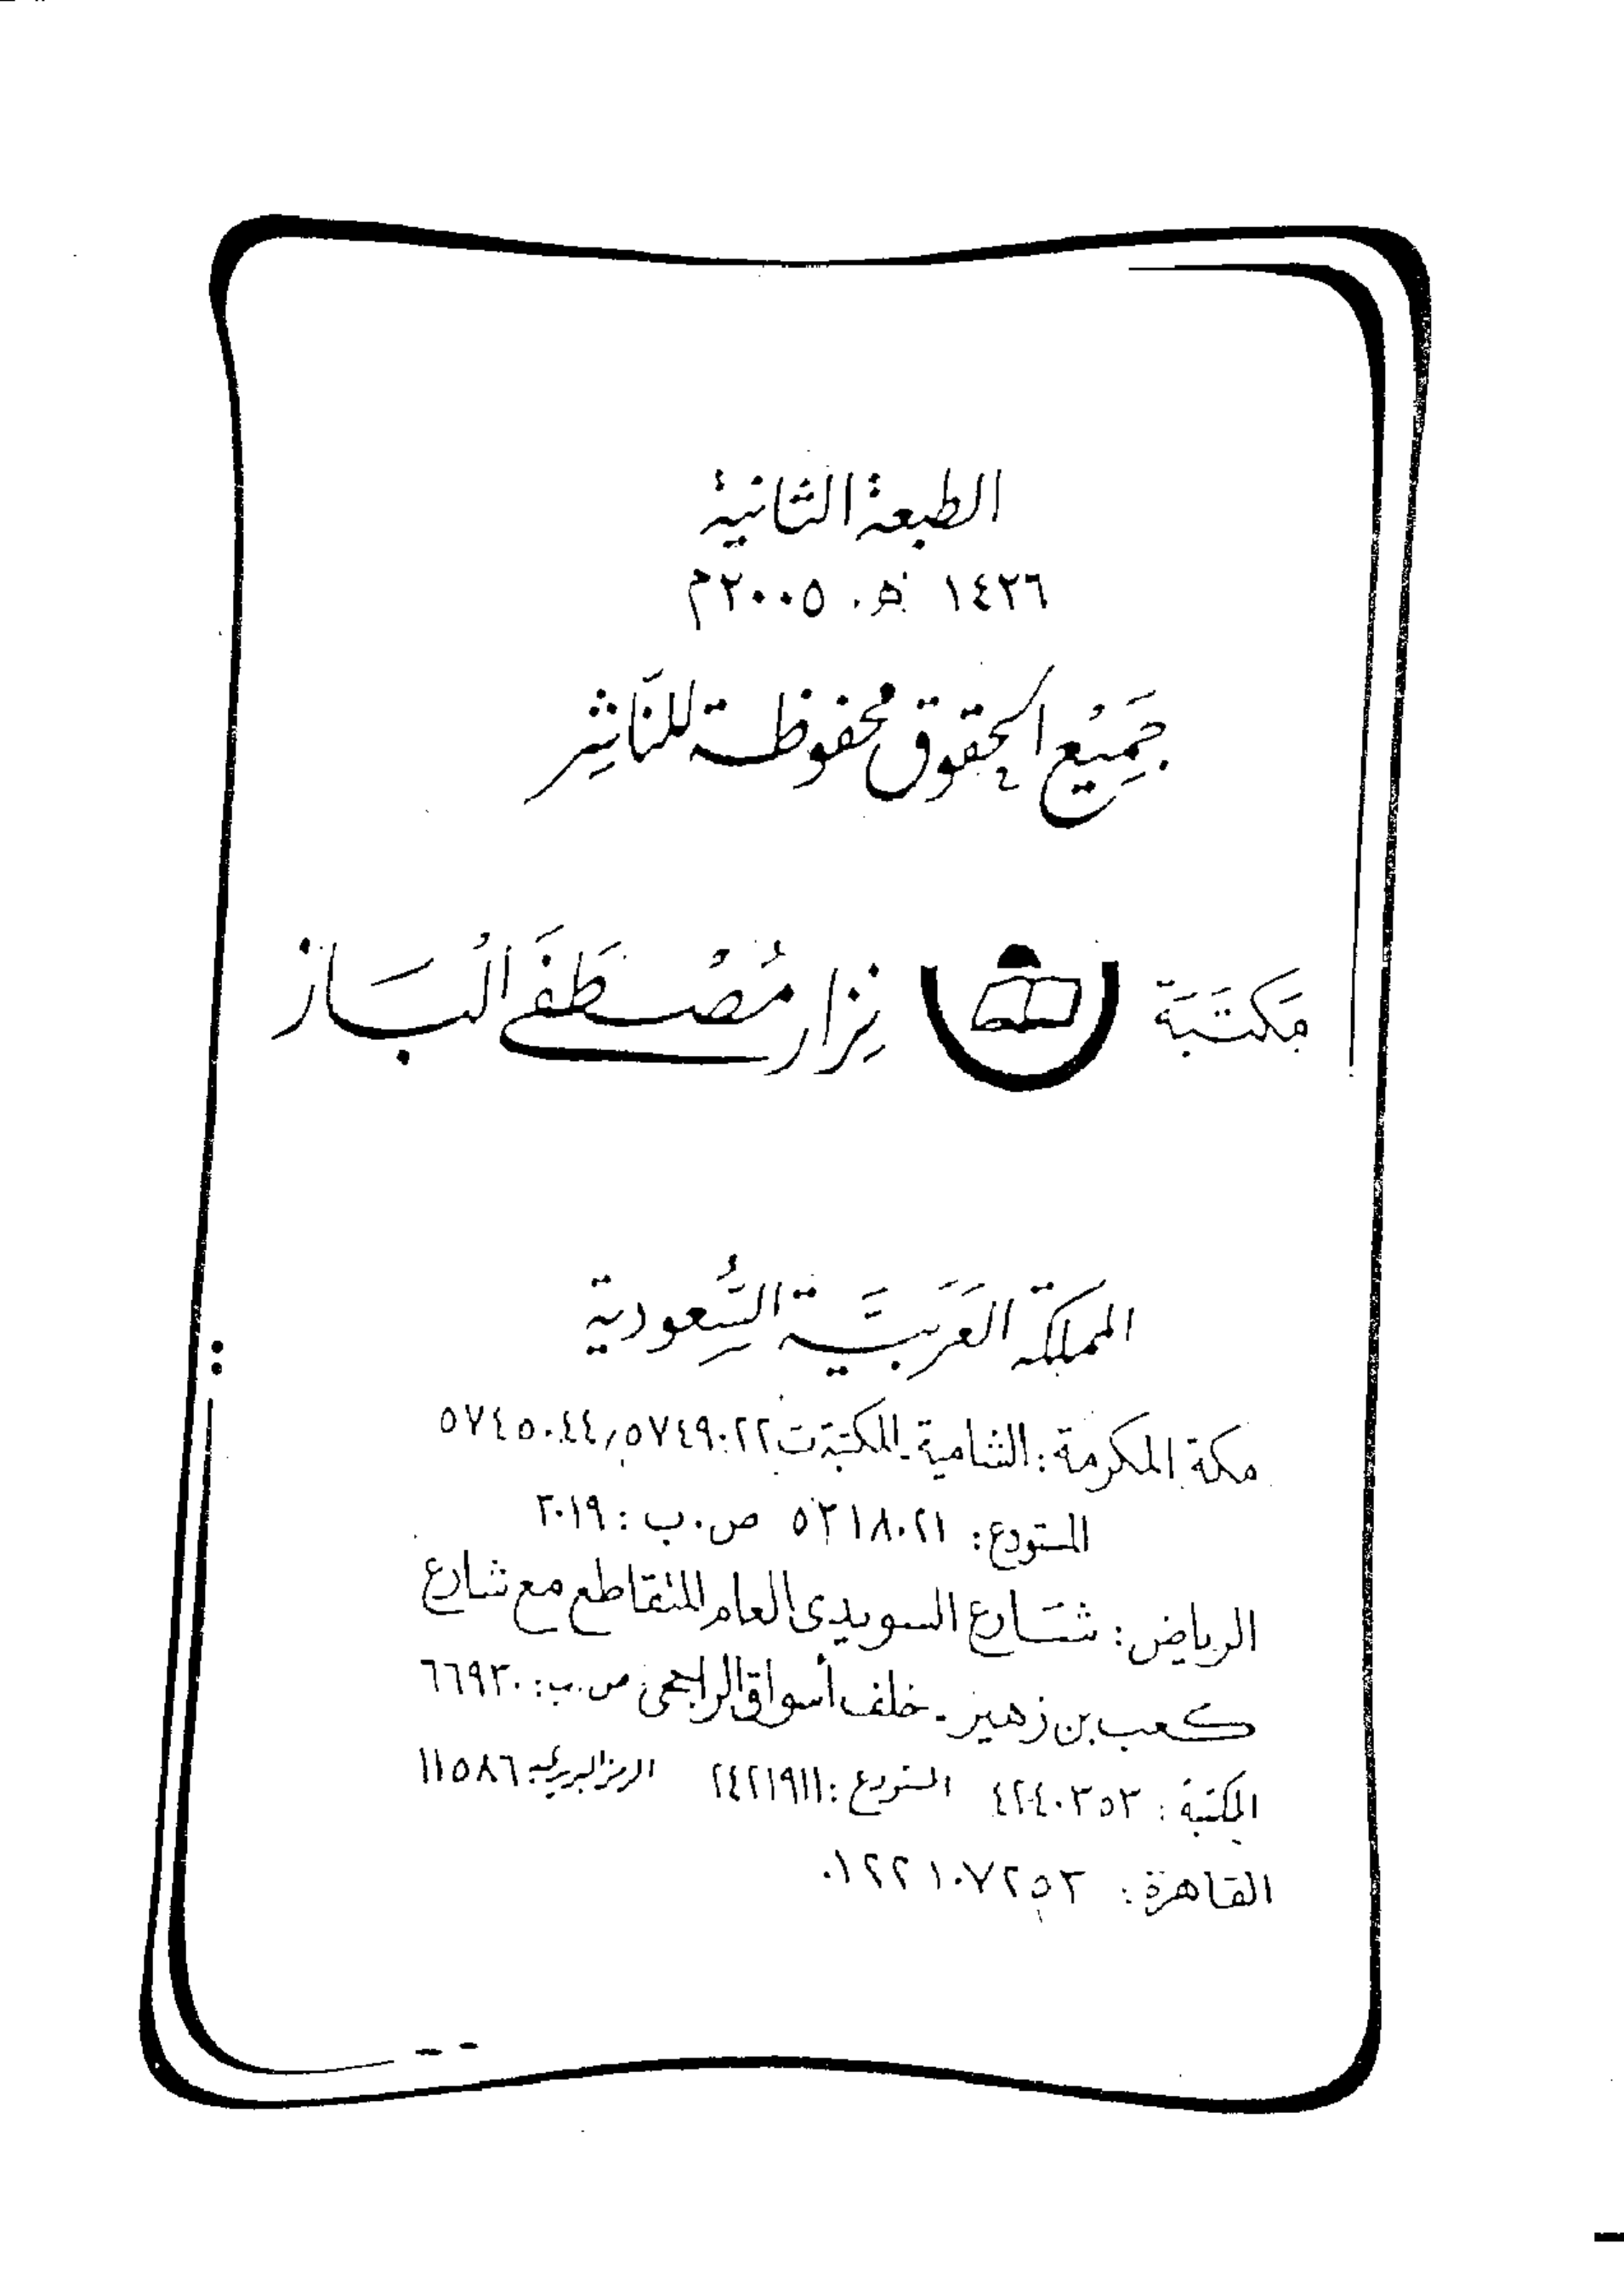 الطبعة الثانية
١٤٢٦ هـ. ٢٠٠٥م
جَمِيْع الحقوق محفوظة للنَاشِر
مَكتَبَة نِزار مُصْطَفَى الْبَاز
المملكة العَرَبيَّة السُّعودية
مكة المكرمة: الشامية ـ المكتبة ت ٥٧٤٩٠٢٢/ ٥٧٤٥٠٤٤
المستودع: ٥٢١٨٠٢١ ص.ب: ٢٠١٩
الرياض: شارع السويدى العام المتقاطع مع شارع
كعب بن زهير ـ خلف أسواق الراجحى ص.ب: ٦٦٩٣٠
المكتبة: ٤٢٤٠٣٥٣ المستودع: ٢٤٢١٩١١ الرمز البريدى: ١١٥٨٦
القاهرة: ٠١٢٢١٠٧٢٥٣